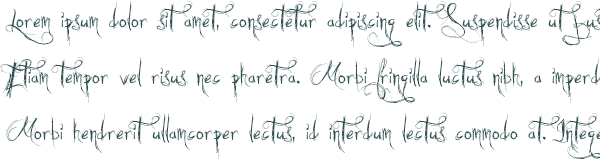 Lorem ipsum dolor sit amet, consectetur adipiscing elit. Suspendisse ut
Etiam tempor vel risus nec pharetra. Morbi fringilla luctus nibh, a imperd
Morbi hendrerit ullamcorper lectus, id interdum lectus commodo at. Intege